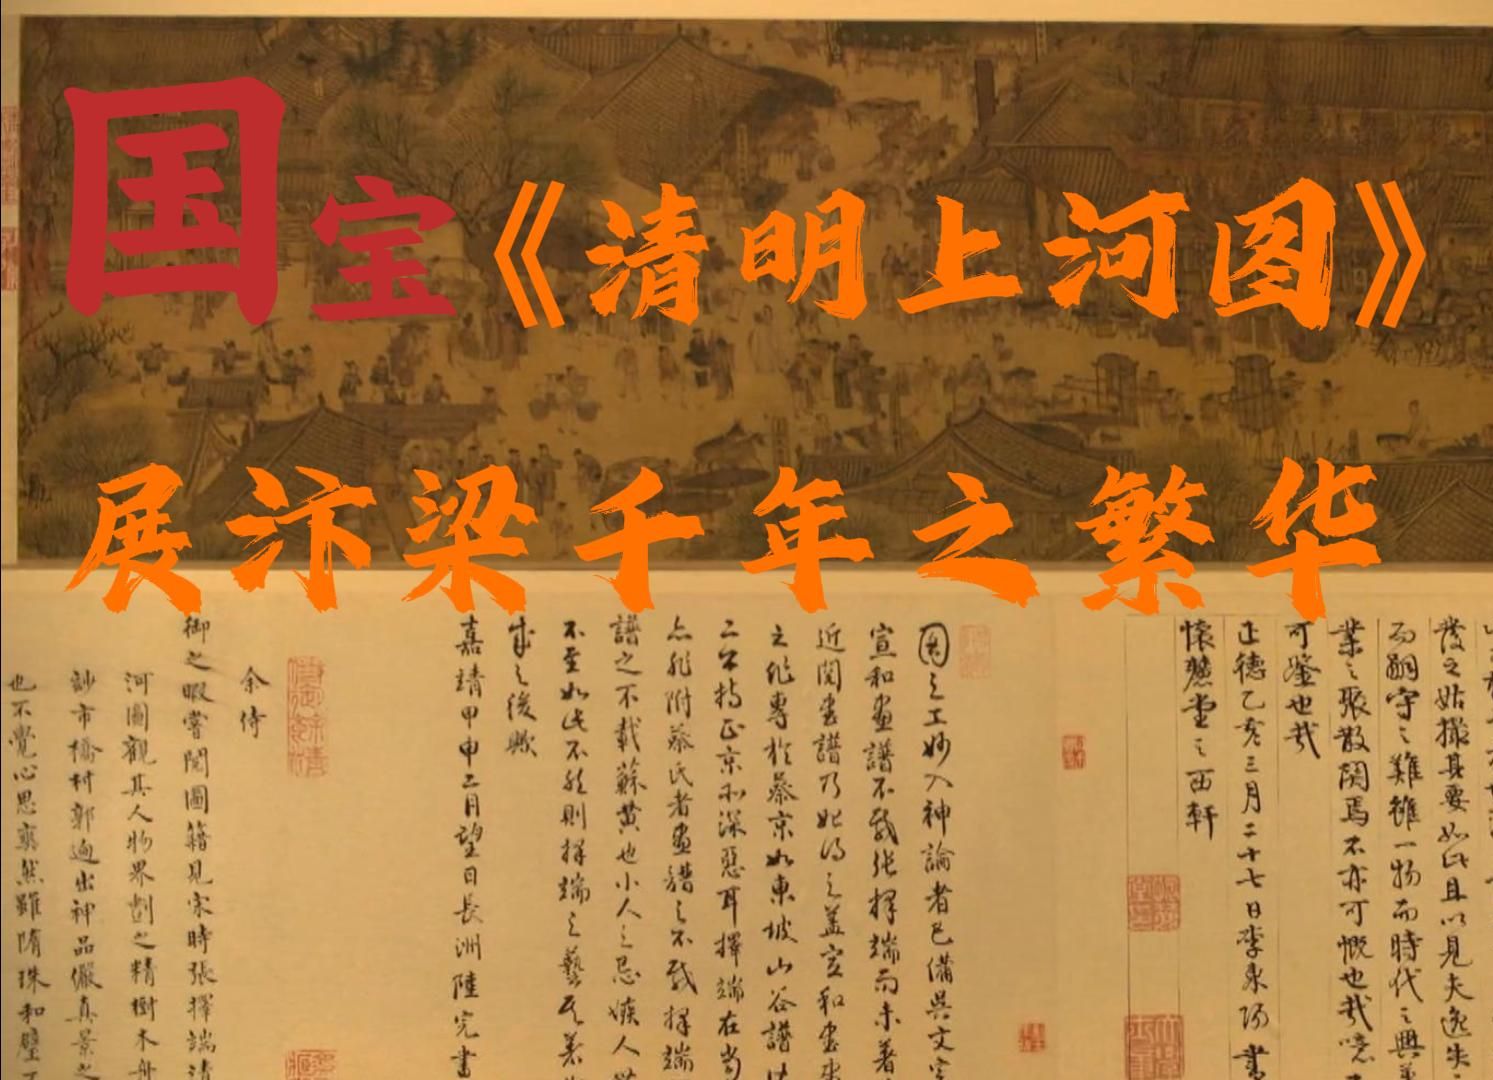 国宝《清明上河图》
展汴梁千年之繁华
之姑撮其要如此且以見夫逸失
而嗣守之難雖一物而時代之興
業之張散関焉不亦可慨也哉噫
可鑒也哉
正德乙亥三月二十七日李東陽書
懷麓堂之西軒
圖之工妙入神論者已備吳文定
宣和畫譜不載張擇端而未著
近閱畫譜乃始得之蓋宣和畫
之作專於蔡京如東坡山谷譜
二公持正京所深惡耳擇端在當
亦非附蔡氏者畫譜之不載擇端
譜之不載蘇黃也小人之忌嫉人
不至如此不然則擇端之藝其著
成之後歟
嘉靖甲申二月望日長洲陸完書
余侍
御之暇嘗閱圖籍見宋時張擇端清
河圖觀其人物界劃之精樹木舟
妙市橋村郭迥出神品儼真景之
也不覺心思爽然雖隋珠和璧